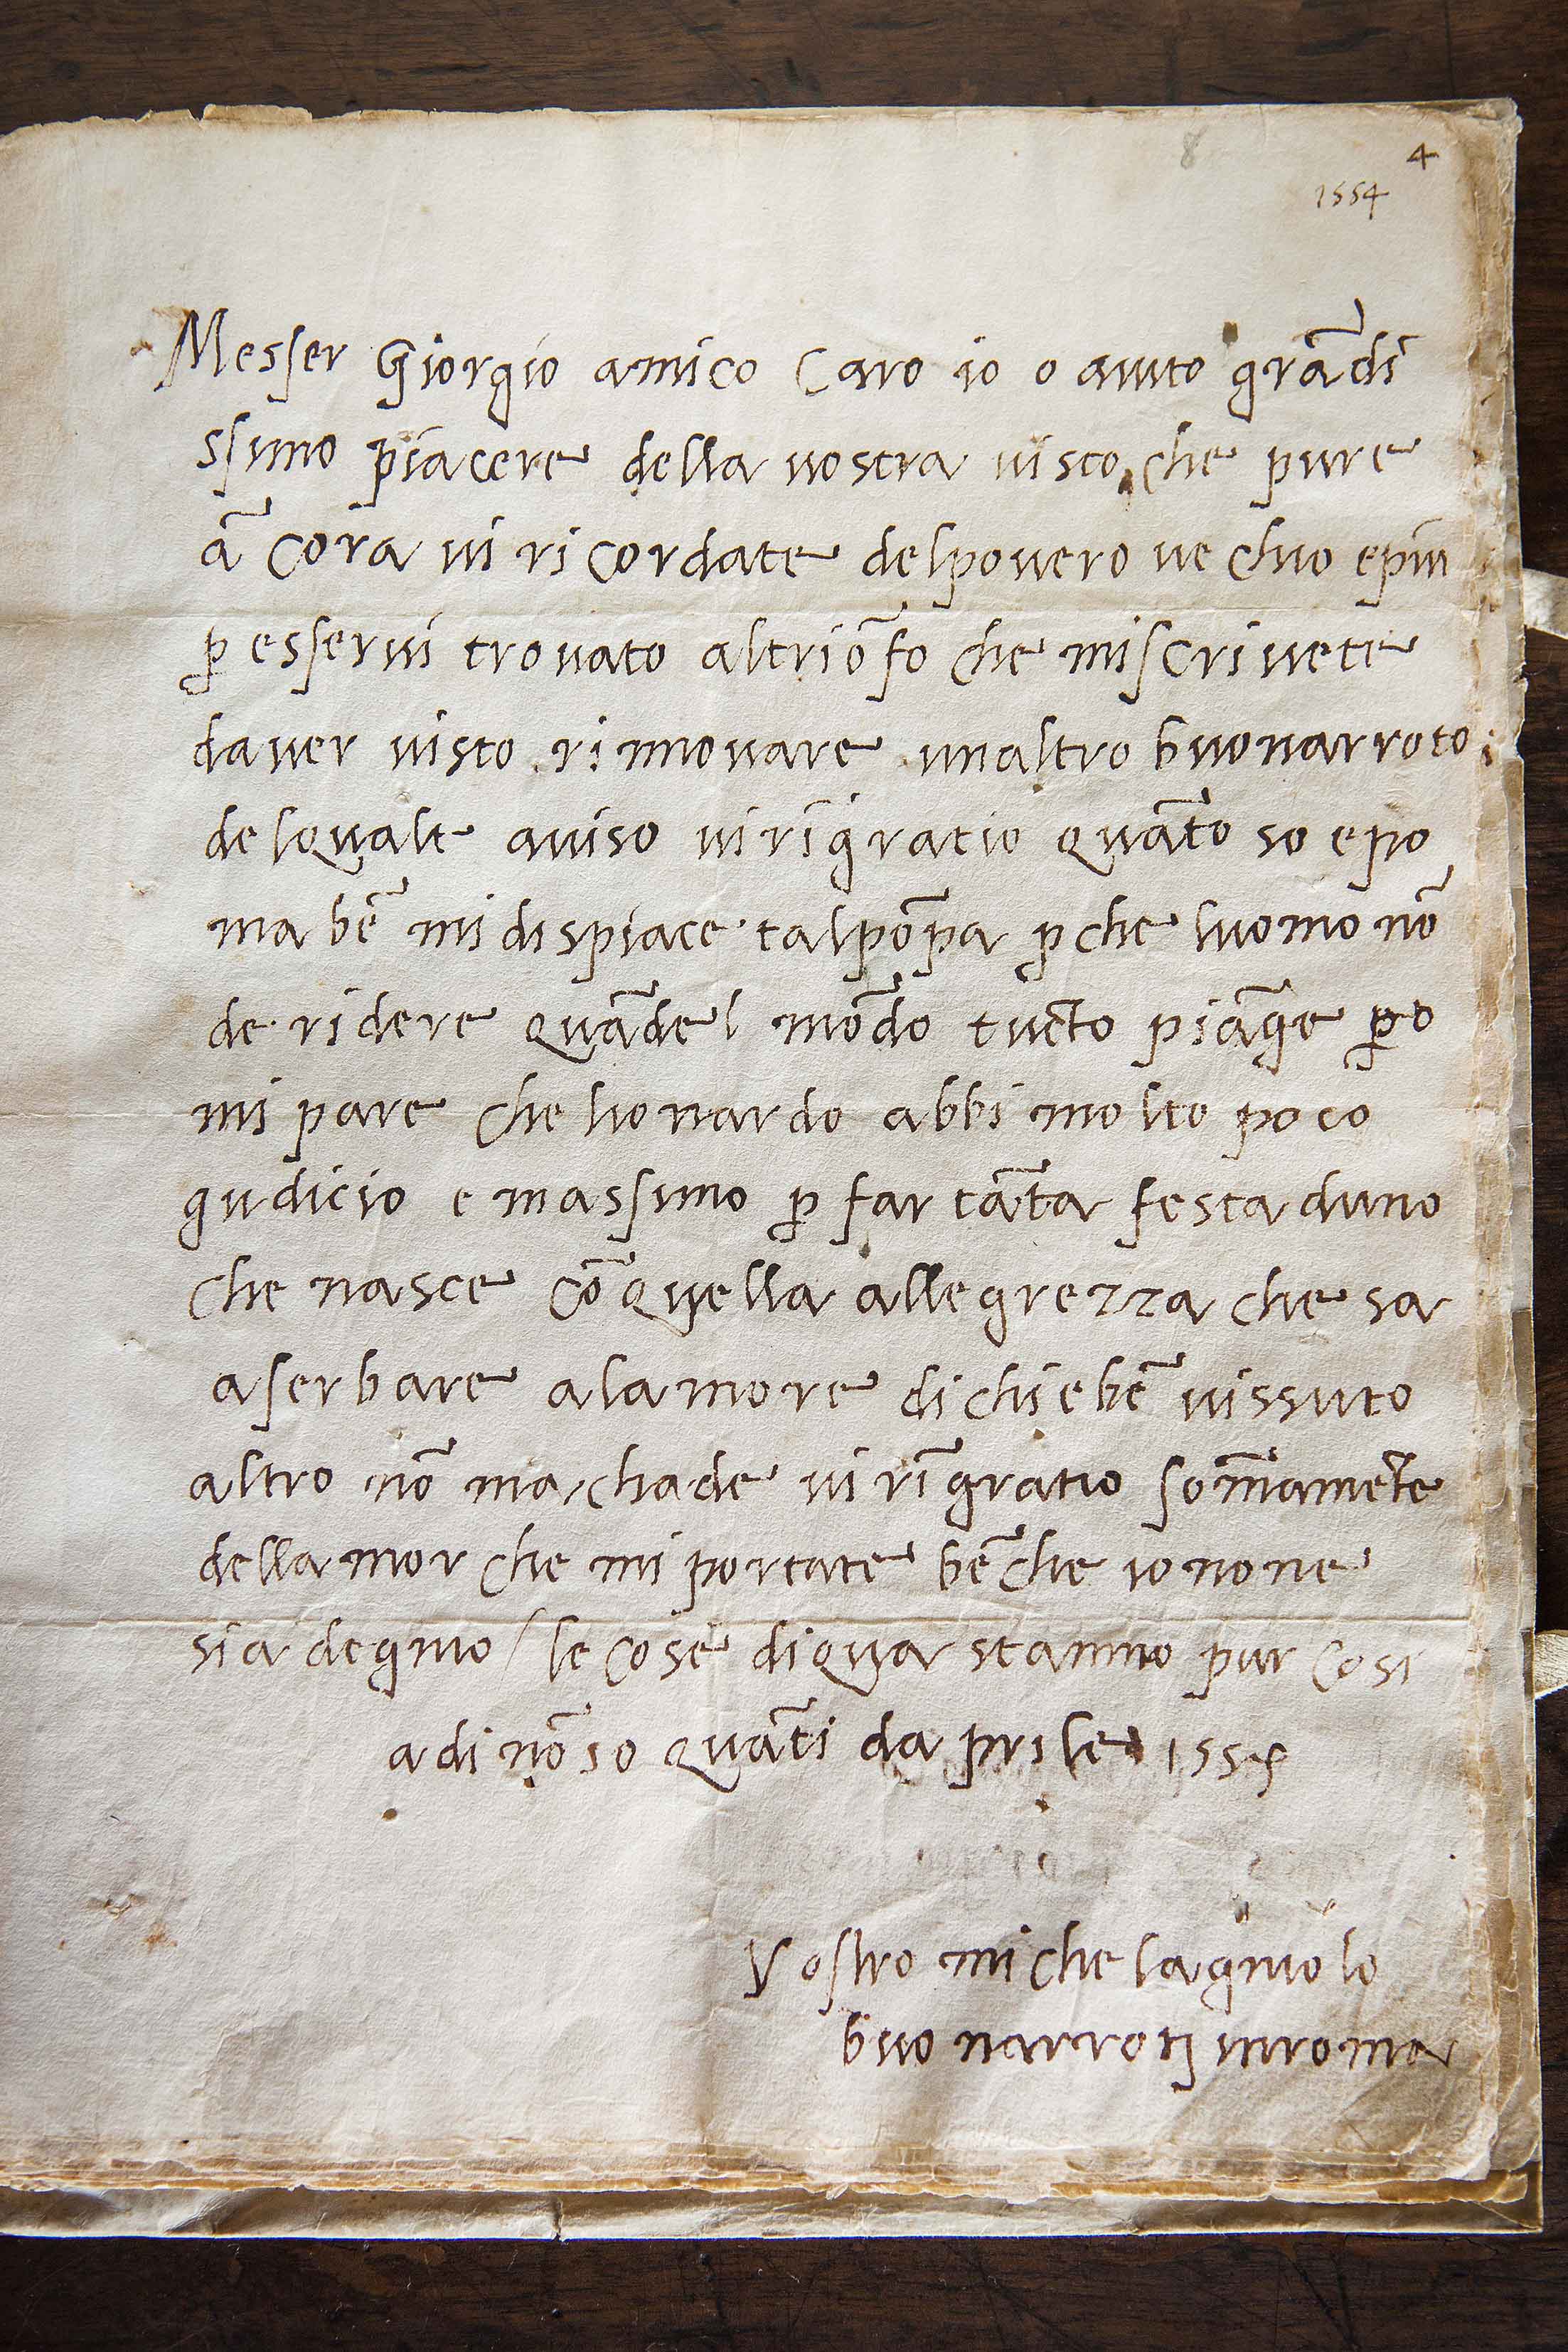 8
4
1554
Messer Giorgio amico Caro io o auuto grādi
ssimo piacere della vostra visto che pure
ā cora vi ricordate delpovero vechio epiu
ꝑ esservi trovato altriōfo che miscrivete
daver visto rinnovare unaltro buonarroto
delquale aviso viringratio quāto so e po
ma bē mi dispiace talpōpa ꝑche luomo nō
de ridere quādel mōdo tucto piāge ꝑo
mi pare che lionardo abbi molto poco
gudicio e massimo ꝑ far tāta festa duno
che nasce cō quella allegrezza che sa
a serbare a la more di chi e bē vissuto
altro nō ma chade vi rīgratio sommamēte
della mor che mi portate bē che io non ne
sia degnio / le cose di qua stanno pur cosi
a di nō so quāti da prile 1554
Vostro miche lagniolo
buo narroti in roma